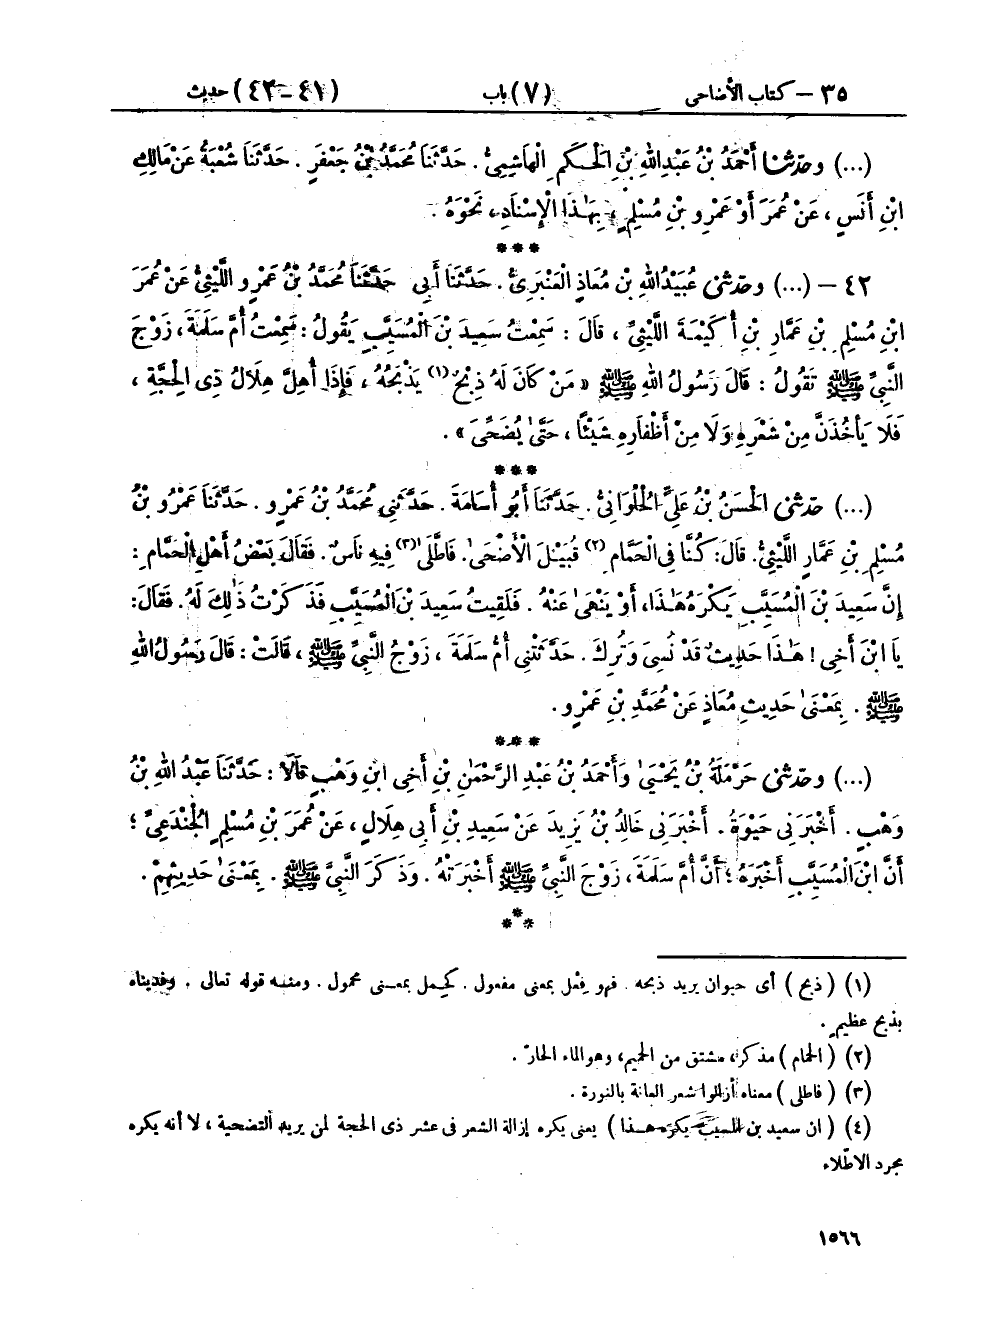 ٣٥ – كتاب الأضاحى (٧) باب (٤١-٤٢) حديث
(...) وحدثنا أَحْمَدُ بْنُ عَبْدِ اللهِ بْنِ الْحَكَمِ الْهَاشِمِىُّ . حَدَّثَنَا مُحَمَّدُ بْنُ جَعْفَرٍ . حَدَّثَنَا شُعْبَةُ عَنْ مَالِكِ
ابْنِ أَنَسٍ ، عَنْ عُمَرَ أَوْ عَمْرِو بْنِ مُسْلِمٍ ، بِهَٰذَا الْإِسْنَادِ ، نَحْوَهُ .
***
٤٢ – (...) وحدثنى عُبَيْدُ اللهِ بْنُ مُعَاذٍ الْعَنْبَرِىُّ . حَدَّثَنَا أَبِى حَدَّثَنَا مُحَمَّدُ بْنُ عَمْرٍو اللَّيْثِىُّ عَنْ عُمَرَ
ابْنِ مُسْلِمِ بْنِ عَمَّارِ بْنِ أُكَيْمَةَ اللَّيْثِىِّ ، قَالَ : سَمِعْتُ سَعِيدَ بْنَ الْمُسَيَّبِ يَقُولُ : سَمِعْتُ أُمَّ سَلَمَةَ ، زَوْجَ
النَّبِىِّ ﷺ تَقُولُ : قَالَ رَسُولُ اللهِ ﷺ « مَنْ كَانَ لَهُ ذِبْحٌ (١) يَذْبَحُهُ ، فَإِذَا أُهِلَّ هِلَالُ ذِى الْحِجَّةِ ،
فَلَا يَأْخُذَنَّ مِنْ شَعْرِهِ وَلَا مِنْ أَظْفَارِهِ شَيْئًا ، حَتَّىٰ يُضَحِّىَ » .
***
(...) حدثنى الْحَسَنُ بْنُ عَلِىٍّ الْحُلْوَانِىُّ . حَدَّثَنَا أَبُو أُسَامَةَ . حَدَّثَنِى مُحَمَّدُ بْنُ عَمْرٍو . حَدَّثَنَا عَمْرُو بْنُ
مُسْلِمِ بْنِ عَمَّارٍ اللَّيْثِىُّ. قَالَ: كُنَّا فِى الْحَمَّامِ (٢) قُبَيْلَ الْأَضْحَىٰ. فَاطَّلَىٰ (٣) فِيهِ نَاسٌ. فَقَالَ بَعْضُ أَهْلِ الْحَمَّامِ :
إِنَّ سَعِيدَ بْنَ الْمُسَيَّبِ يَكْرَهُ هَٰذَا، أَوْ يَنْهَىٰ عَنْهُ . فَلَقِيتُ سَعِيدَ بْنَ الْمُسَيَّبِ فَذَكَرْتُ ذَٰلِكَ لَهُ. فَقَالَ:
يَا ابْنَ أَخِى ! هَٰذَا حَدِيثٌ قَدْ نُسِىَ وَتُرِكَ . حَدَّثَتْنِى أُمُّ سَلَمَةَ ، زَوْجُ النَّبِىِّ ﷺ ، قَالَتْ : قَالَ رَسُولُ اللهِ
ﷺ . بِمَعْنَىٰ حَدِيثِ مُعَاذٍ عَنْ مُحَمَّدِ بْنِ عَمْرٍو .
***
(...) وحدثنى حَرْمَلَةُ بْنُ يَحْيَىٰ وَأَحْمَدُ بْنُ عَبْدِ الرَّحْمَٰنِ بْنِ أَخِى ابْنِ وَهْبٍ قَالَا : حَدَّثَنَا عَبْدُ اللهِ بْنُ
وَهْبٍ . أَخْبَرَنِى حَيْوَةُ . أَخْبَرَنِى خَالِدُ بْنُ يَزِيدَ عَنْ سَعِيدِ بْنِ أَبِى هِلَالٍ ، عَنْ عُمَرَ بْنِ مُسْلِمٍ الْجُنْدَعِىِّ ؛
أَنَّ ابْنَ الْمُسَيَّبِ أَخْبَرَهُ ؛ أَنَّ أُمَّ سَلَمَةَ ، زَوْجَ النَّبِىِّ ﷺ أَخْبَرَتْهُ . وَذَكَرَ النَّبِىَّ ﷺ . بِمَعْنَىٰ حَدِيثِهِمْ .
***
(١) ( ذبح ) أى حيوان يريد ذبحه . فهو فِعْل بمعنى مفعول . كحِمل بمعنى محمول . ومنه قوله تعالى . وفديناه
بذبح عظيم .
(٢) ( الحمام ) مذكر، مشتق من الحميم، وهو الماء الحارّ .
(٣) ( فاطلى ) معناه أزالوا شعر العانة بالنورة .
(٤) ( ان سعيد بن المسيب يكره هذا ) يعنى يكره إزالة الشعر فى عشر ذى الحجة لمن يريد التضحية ، لا أنه يكره
مجرد الاطّلاء
١٥٦٦